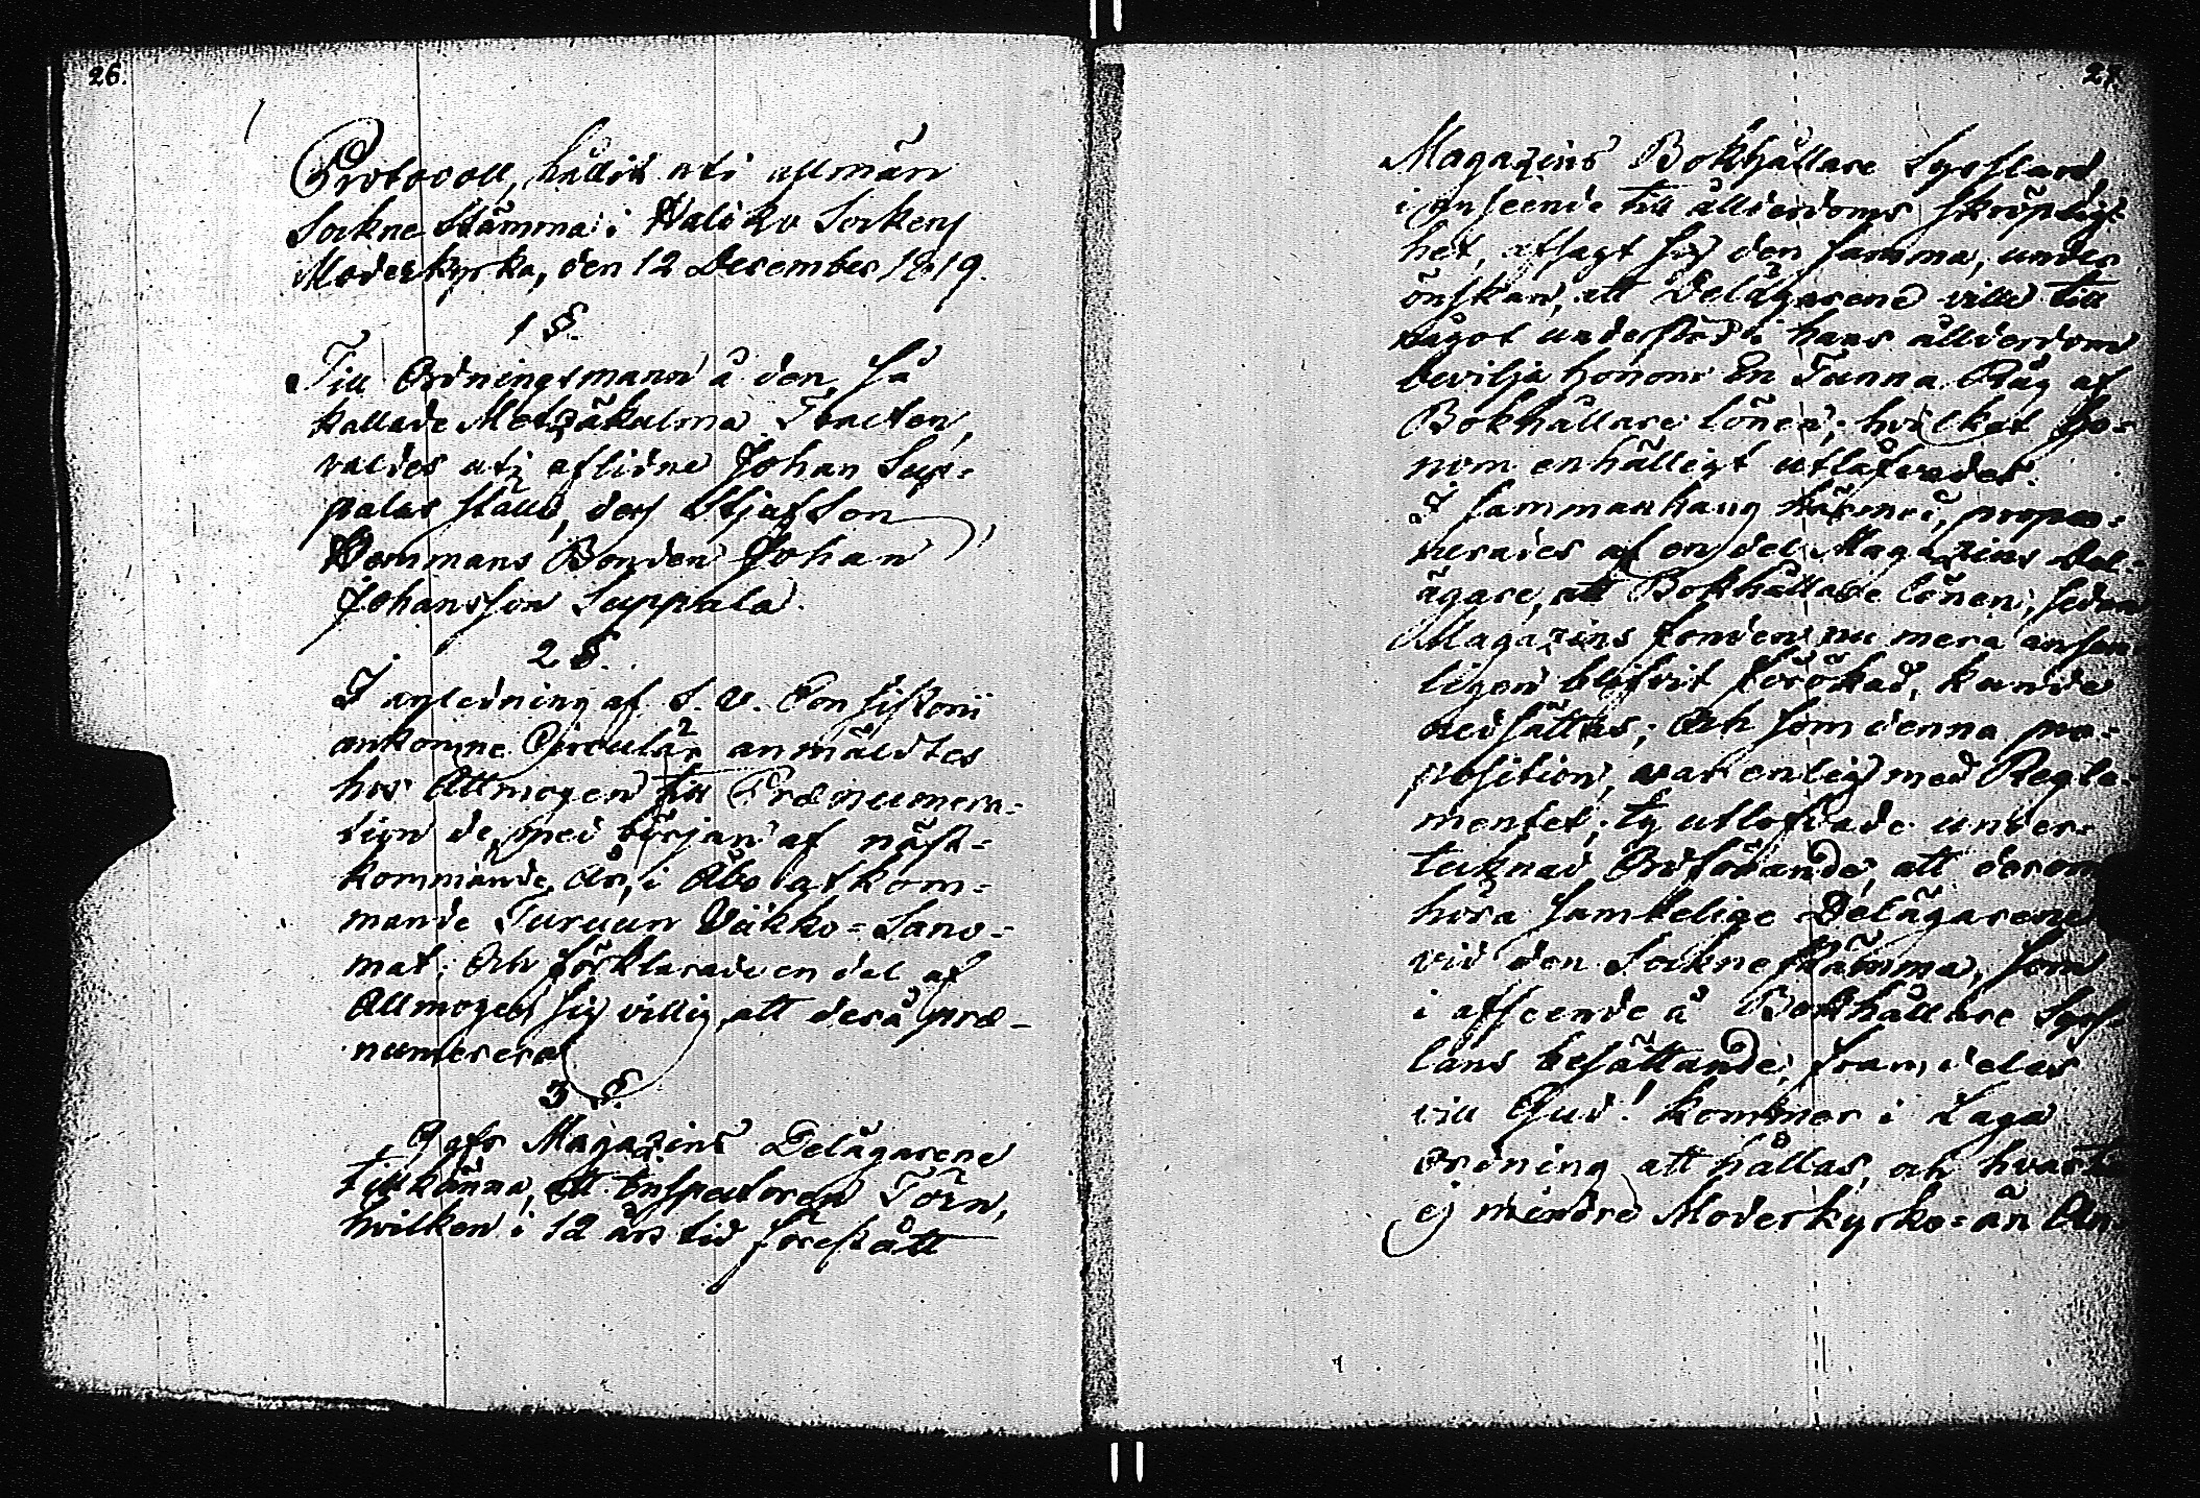 26.
Protocoll, hållit uti allmän
Sockne Stämma i Haliko Sockens
Moderkyrka, den 12 December 1819.
1 §.
Till Ordningsmann å den så
kallade Metzäkulma Tracten,
valdes uti aflidne Johan Sup-
palas ställe, dess Stjufson
Hemmans Bonden Johan
Johansson Suppala.
2 §.
I anledning af S. V. Consistorii
ankomne Circulär anmäldtes
hos Allmogen till Prænumera-
tion de, med början af näst-
kommande År, i Åbo utkom-
mande Turuun Viikko-Sano-
mat; Och förklarade en del af
Allmogen sig villig att derå præ-
numerera.
3 §.
Gafs Magazins Delägarene
tillkänna, att Inspectoren Törn,
hvilken i 12 års tid förestått
27.
Magazins Bokhållare Sysslan
i anseende till ålderdoms skröplig-
het, afsagt sig den samma, under
önskan, att Delägarene ville till
något understöd i hans ålderdom
bevilja honom En Tunna Råg af
Bokhållare lönen; hvilket ho-
nom enhälligt utlåfvades.
I sammanhang härmed, propo-
nerades af en del Magazins Del-
ägare, att Bokhållare lönen, sedan
Magazins fonden nu mera ansen
ligen blifvit förökad, kunde
nedsättas; Och som denna pro-
position, var enlig med Regle-
mentet; ty utlofvade under-
tecknad Ordförande, att derom
höra samtelige Delägarene
vid den Sockne Stämma, som
i afseende å Bokhållare Syss-
lans besättande, framdeles
vill Gud! kommer i Laga
Ordning att hållas, och hvartil
ej mindre Moderkyrko- än An-